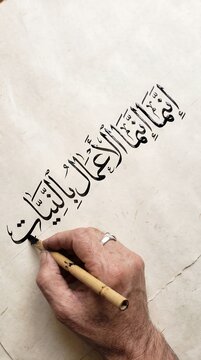 إنَّمَا إنَّمَا الأَعْمَالُ بِالنِّيَّاتِ